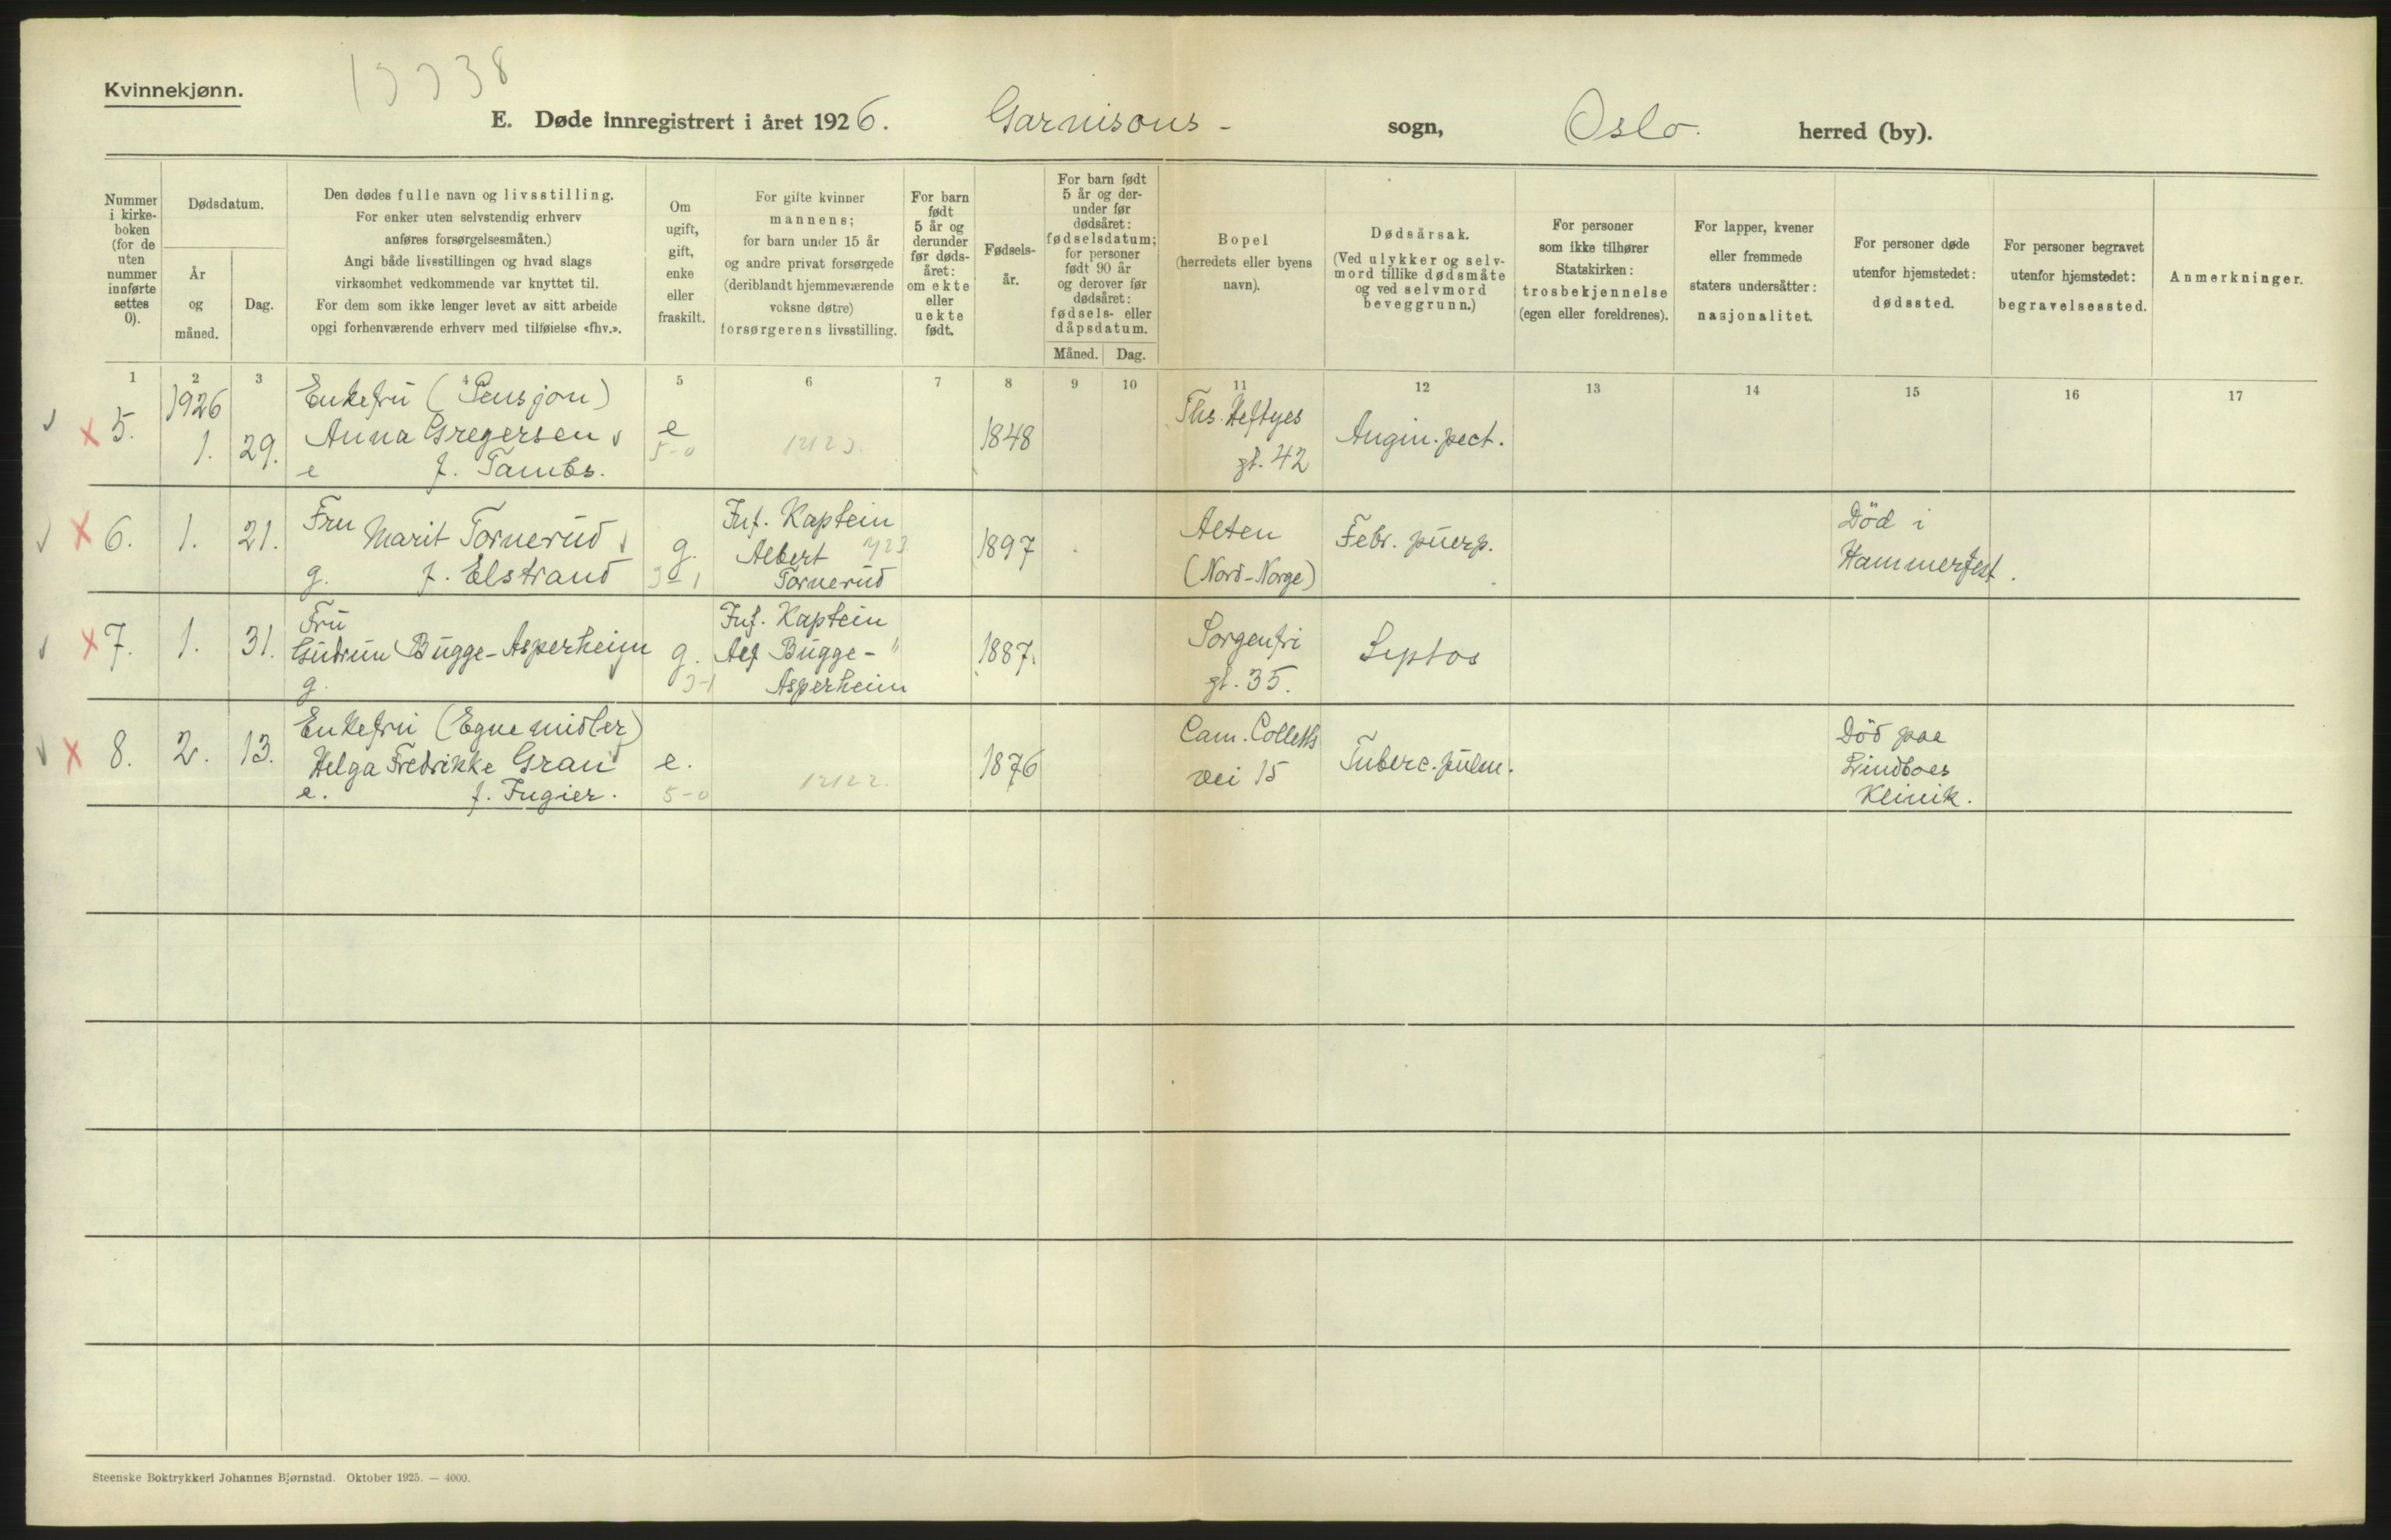 Kvinnekjønn.
E. Døde innregistrert i året 1926. Garnisons- sogn, Oslo. herred (by).
Nummer i kirkeboken (for de uten nummer innførte settes 0).
Dødsdatum.
År og måned.
Dag.
Den dødes fulle navn og livsstilling.
For enker uten selvstendig erhverv
anføres forsørgelsesmåten.)
Angi både livsstillingen og hvad slags
virksomhet vedkommende var knyttet til.
For dem som ikke lenger levet av sitt arbeide
opgi forhenværende erhverv med tilføielse «fhv.».
Om
ugift,
gift,
enke
eller
fraskilt.
For gifte kvinner
mannens;
for barn under 15 år
og andre privat forsørgede
(deriblandt hjemmeværende
voksne døtre)
forsørgerens livsstilling.
For barn
født
5 år og
derunder
før døds-
året:
om ekte
eller
uekte
født.
Fødsels-
år.
For barn født
5 år og der-
under før
dødsåret:
fødselsdatum;
for personer
født 90 år
og derover før
dødsåret:
fødsels- eller
dåpsdatum.
Måned. Dag.
Bopel
(herredets eller byens
navn).
Dødsårsak.
(Ved ulykker og selv-
mord tillike dødsmåte
og ved selvmord
beveggrunn.)
For personer
som ikke tilhører
Statskirken:
trosbekjennelse
(egen eller foreldrenes).
For lapper, kvener
eller fremmede
staters undersåtter:
nasjonalitet.
For personer døde
utenfor hjemstedet:
dødssted.
For personer begravet
utenfor hjemstedet:
begravelsessted.
Anmerkninger.
1 2 3 4 5 6 7 8 9 10 11 12 13 14 15 16 17
5. 1926 1. 29. Enkefru (Pensjon)
Anna Gregersen
e f. Tambs.
e 5-0 1848
Ths. Heftyes
gt. 42
Angin. pect.
6. 1. 21. Fru
Marit Tornerud
g. f. Elstrand
g.
Inf. Kaptein
Albert
Tornerud
1897
Alten
(Nord-Norge)
Febr. puerp.
Död i
Hammerfest.
7. 1. 31. Fru
Gudrun Bugge-Asperheim
g.
g.
Inf. Kaptein
Alf Bugge-
Asperheim
1887.
Sorgenfri
gt. 35.
Septos
8. 2. 13. Enkefru (Egne midler)
Helga Fredrikke Gran
e. f. Fugier.
e. 5-0 1876
Cam. Colletts
vei 15
Tuberc. pulm.
Död paa
Lindboes
Klinik.
Steenske Boktrykkeri Johannes Bjørnstad. Oktober 1925. — 4000.